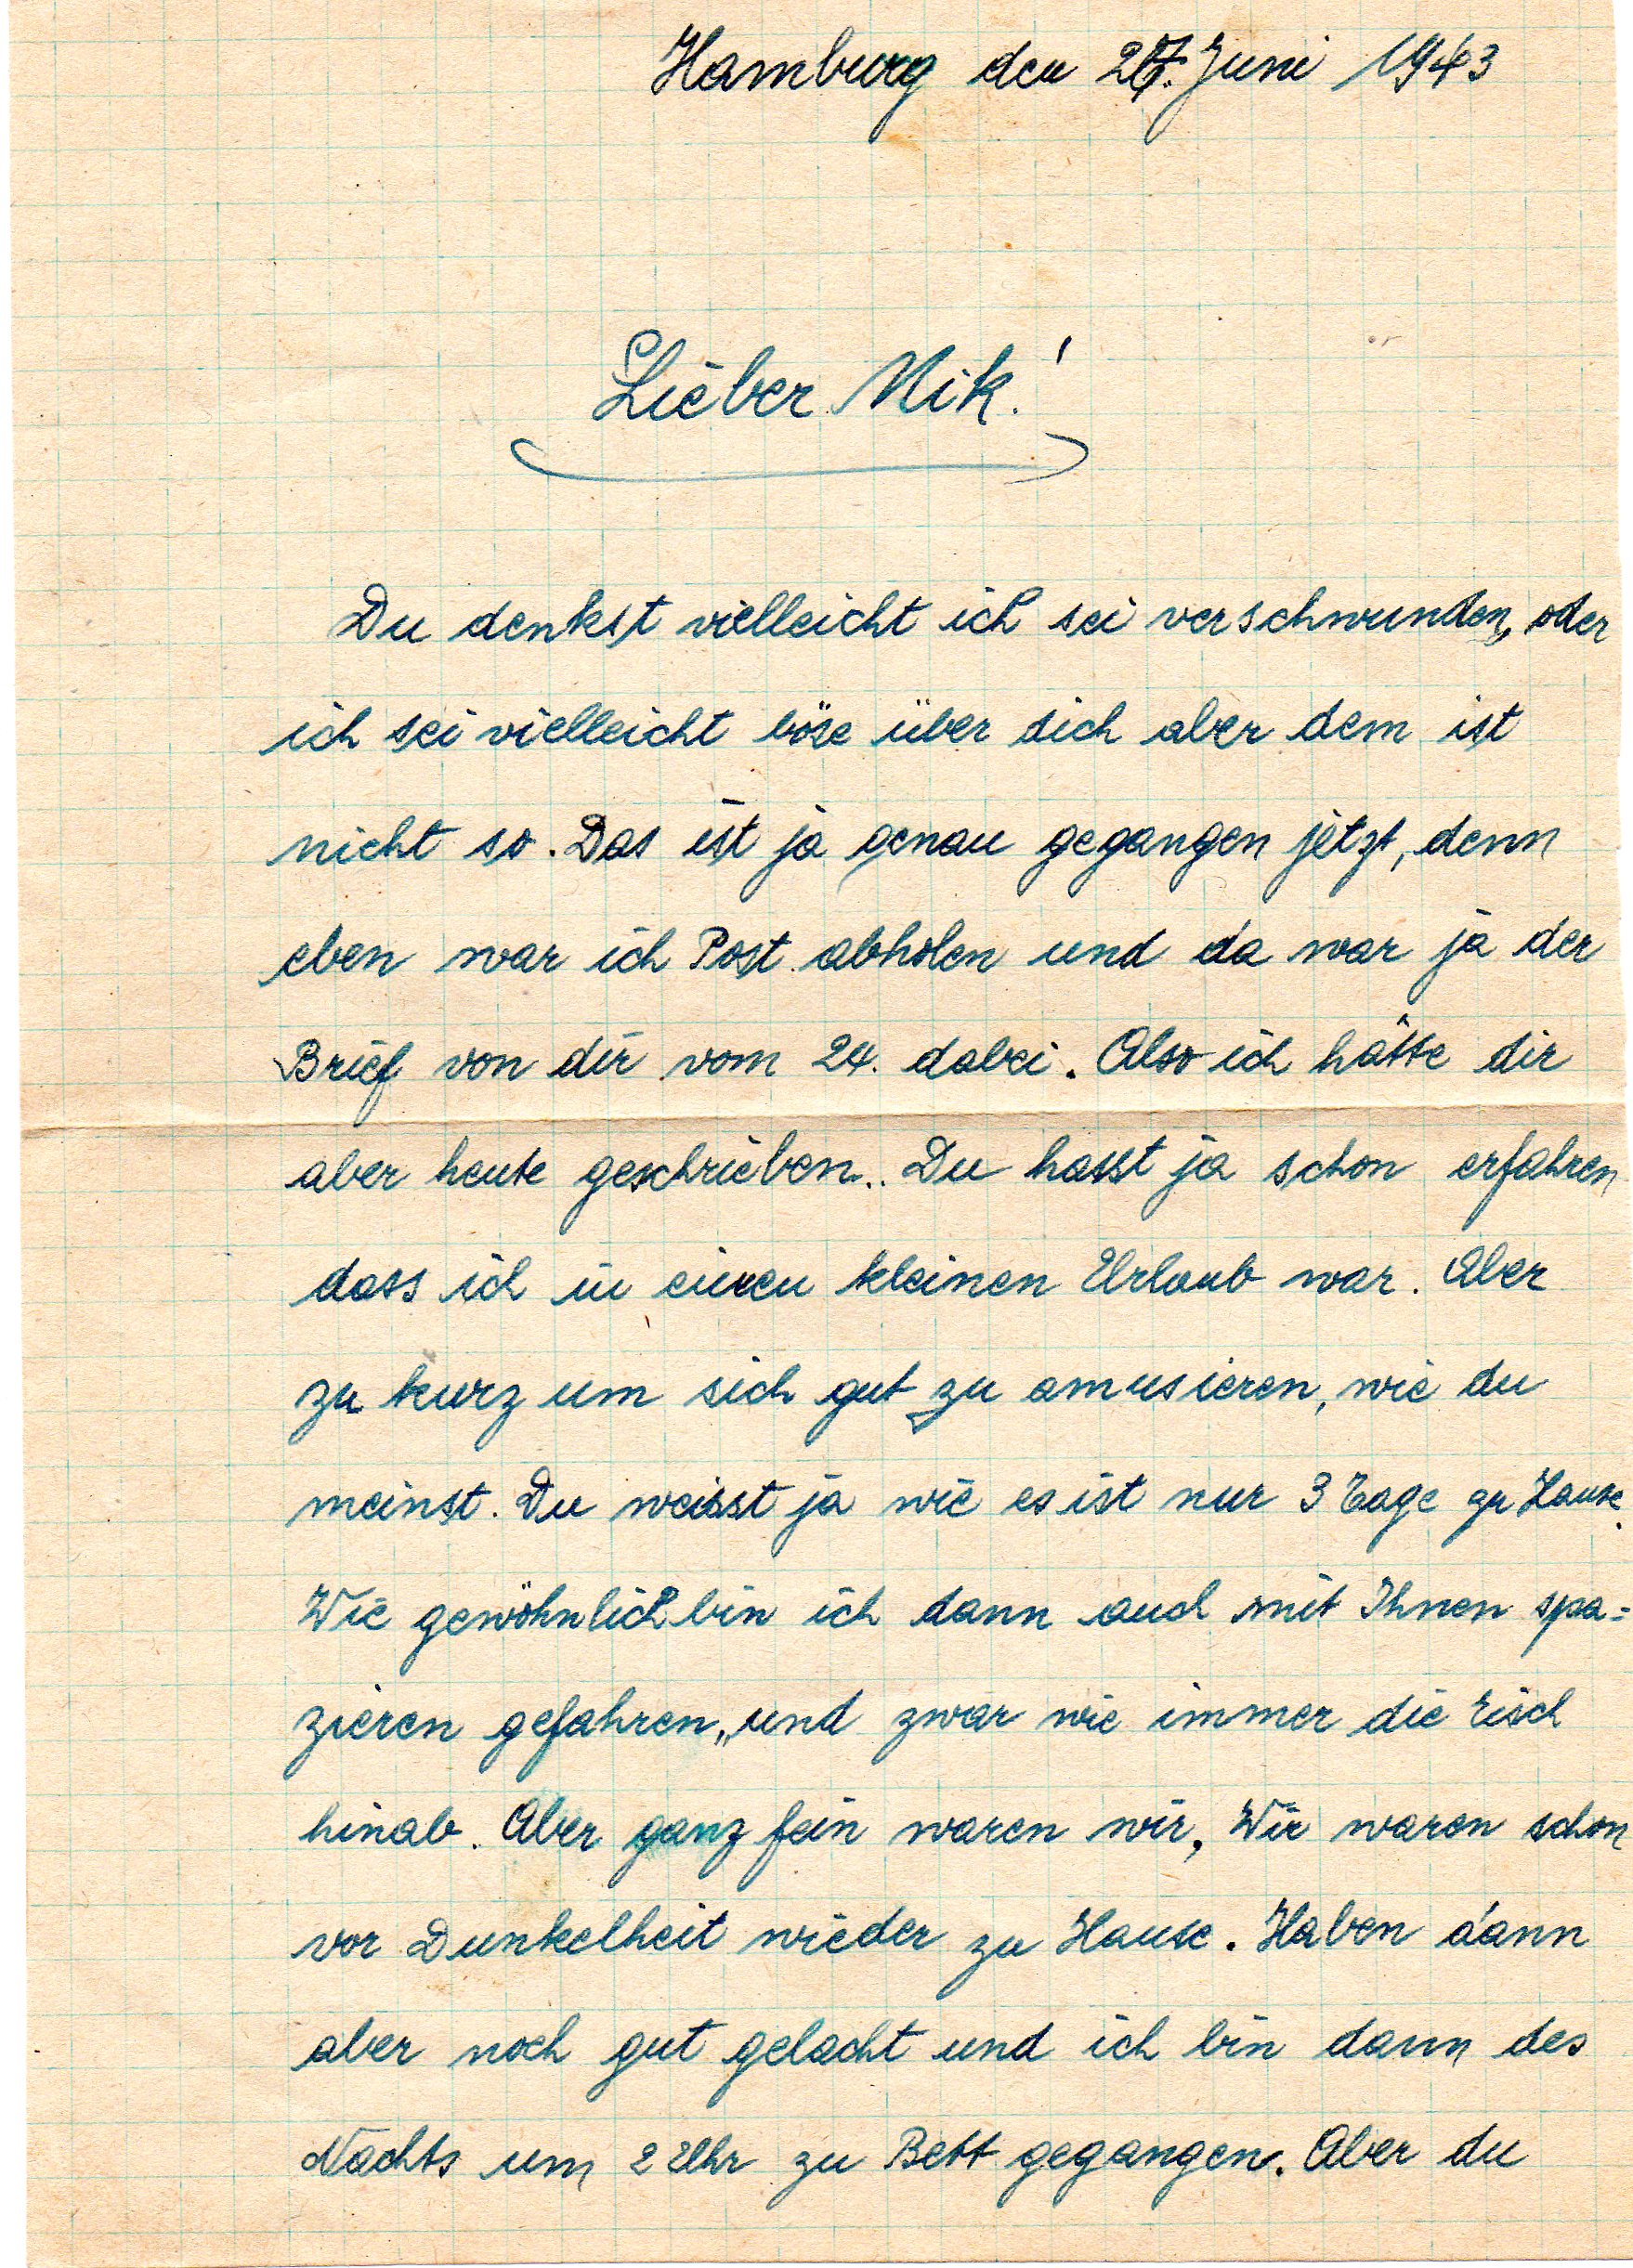 Hamburg den 27. Juni 1943
Lieber Nik!
Du denkst vielleicht ich sei verschwunden, oder
ich sei vielleicht böse über dich aber dem ist
nicht so. Das ist ja genau gegangen jetzt, denn
eben war ich Post abholen und da war ja der
Brief von dir vom 24. dabei. Also ich hätte dir
aber heute geschrieben.. Du hasst ja schon erfahren
dass ich in einen kleinen Urlaub war. Aber
zu kurz um sich gut zu amusieren, wie du
meinst. Du weisst ja wie es ist nur 3 Tage zu Hause.
Wie gewöhnlich bin ich dann auch mit Ihnen spa=
zieren gefahren, und zwar wie immer die Eisch
hinab. Aber ganz fein waren wir, Wir waren schon
vor Dunkelheit wieder zu Hause. Haben dann
aber noch gut gelacht und ich bin dann des
Nachts um 2 Uhr zu Bett gegangen. Aber du